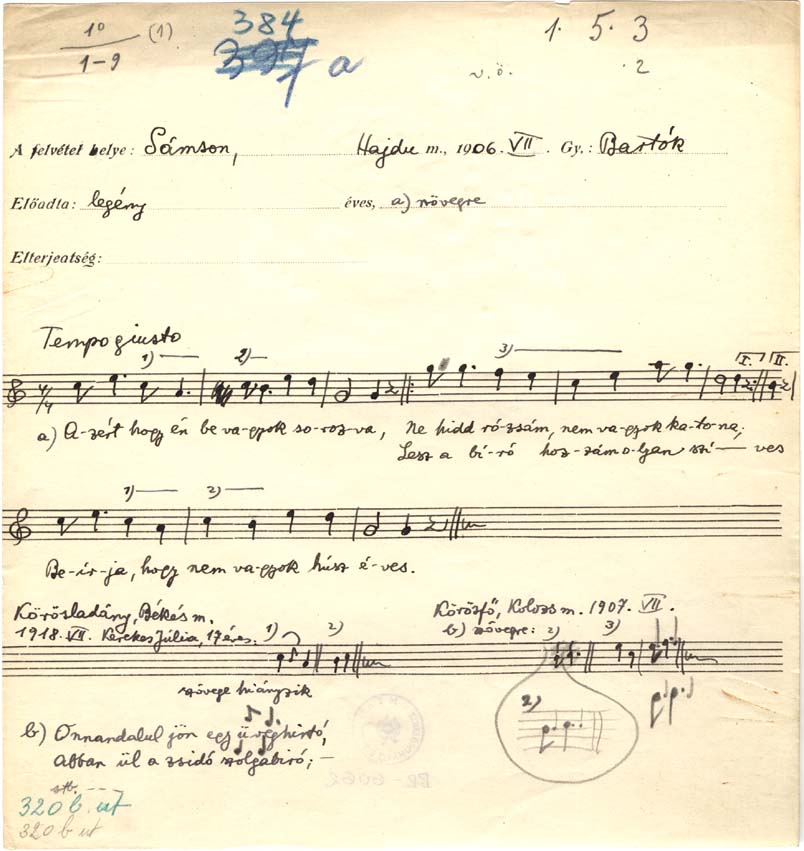 1º (1) 384 1. 5. 3
1–9 397 a v. ö. . 2
A felvétel helye: Sámson, Hajdu m., 1906. VII. Gy.: Bartók
Előadta: legény éves, a) szövegre
Elterjeatség:
Tempo giusto
1) 2) 3) I. II.
4/4
a) A-zért hogy én be va-gyok so-roz-va, Ne hidd ró-zsám, nem va-gyok ka-to-na;
Lesz a bí-ró hoz-zám o-lyan szí- ves
1) 2)
Be-ír-ja, hogy nem va-gyok húsz é-ves.
Körösladány, Békés m. Körösfő, Kolozs m. 1907. VII.
1918. VII. Kerekes Júlia, 17 éves. 1) 2) b) szövegre: 2) 3)
szövege hiányzik
2)
b) Onnandalul jön egy üveghintó,
Abban ül a zsidó szolgabiró; –
stb.
320 b. ut
320 b ut